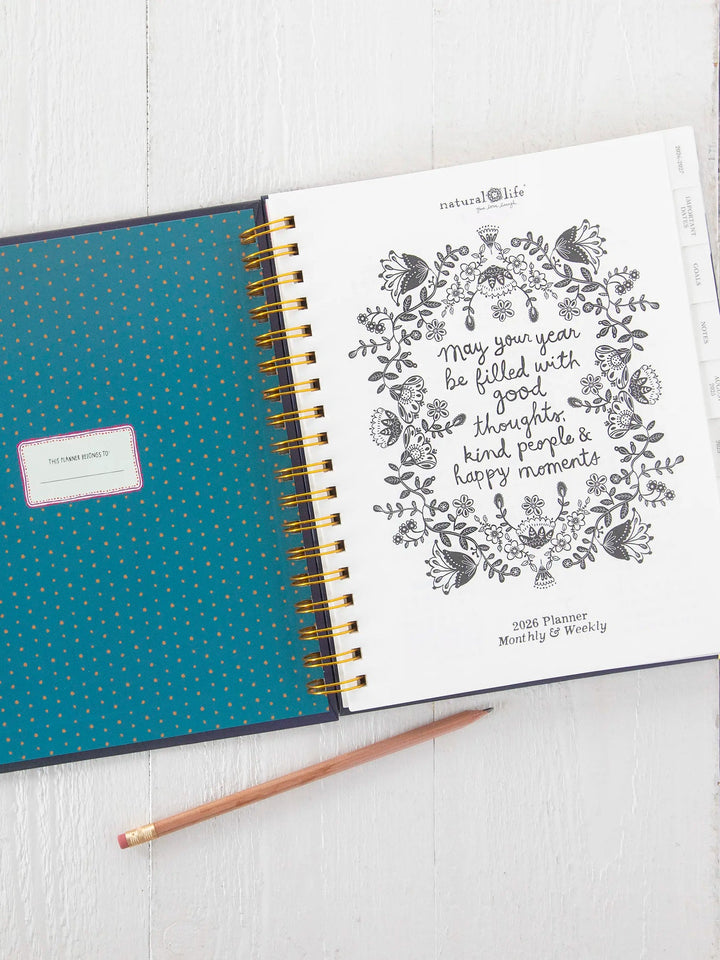 THIS PLANNER BELONGS TO:
natural life
give. love. laugh.
May your year
be filled with
good
thoughts,
kind people &
happy moments
2026 Planner
Monthly & Weekly
2026-2027
IMPORTANT
DATES
GOALS
NOTES